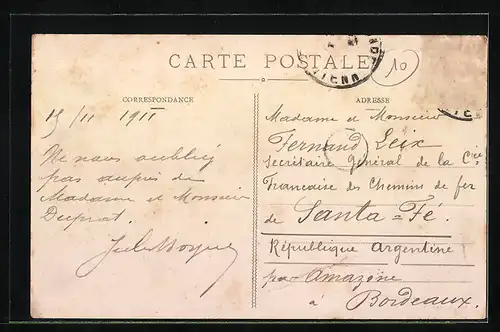 CARTE POSTALE
10
CORRESPONDANCE
ADRESSE
15/11 1911
Ne nous oubliez
pas auprès de
Madame et Monsieur
Duprat.
Madame et Monsieur
Fernand Leix
Secrétaire Général de la Cie
Française des Chemins de fer
de Santa=Fé.
République Argentine
par Amazone
à Bordeaux.